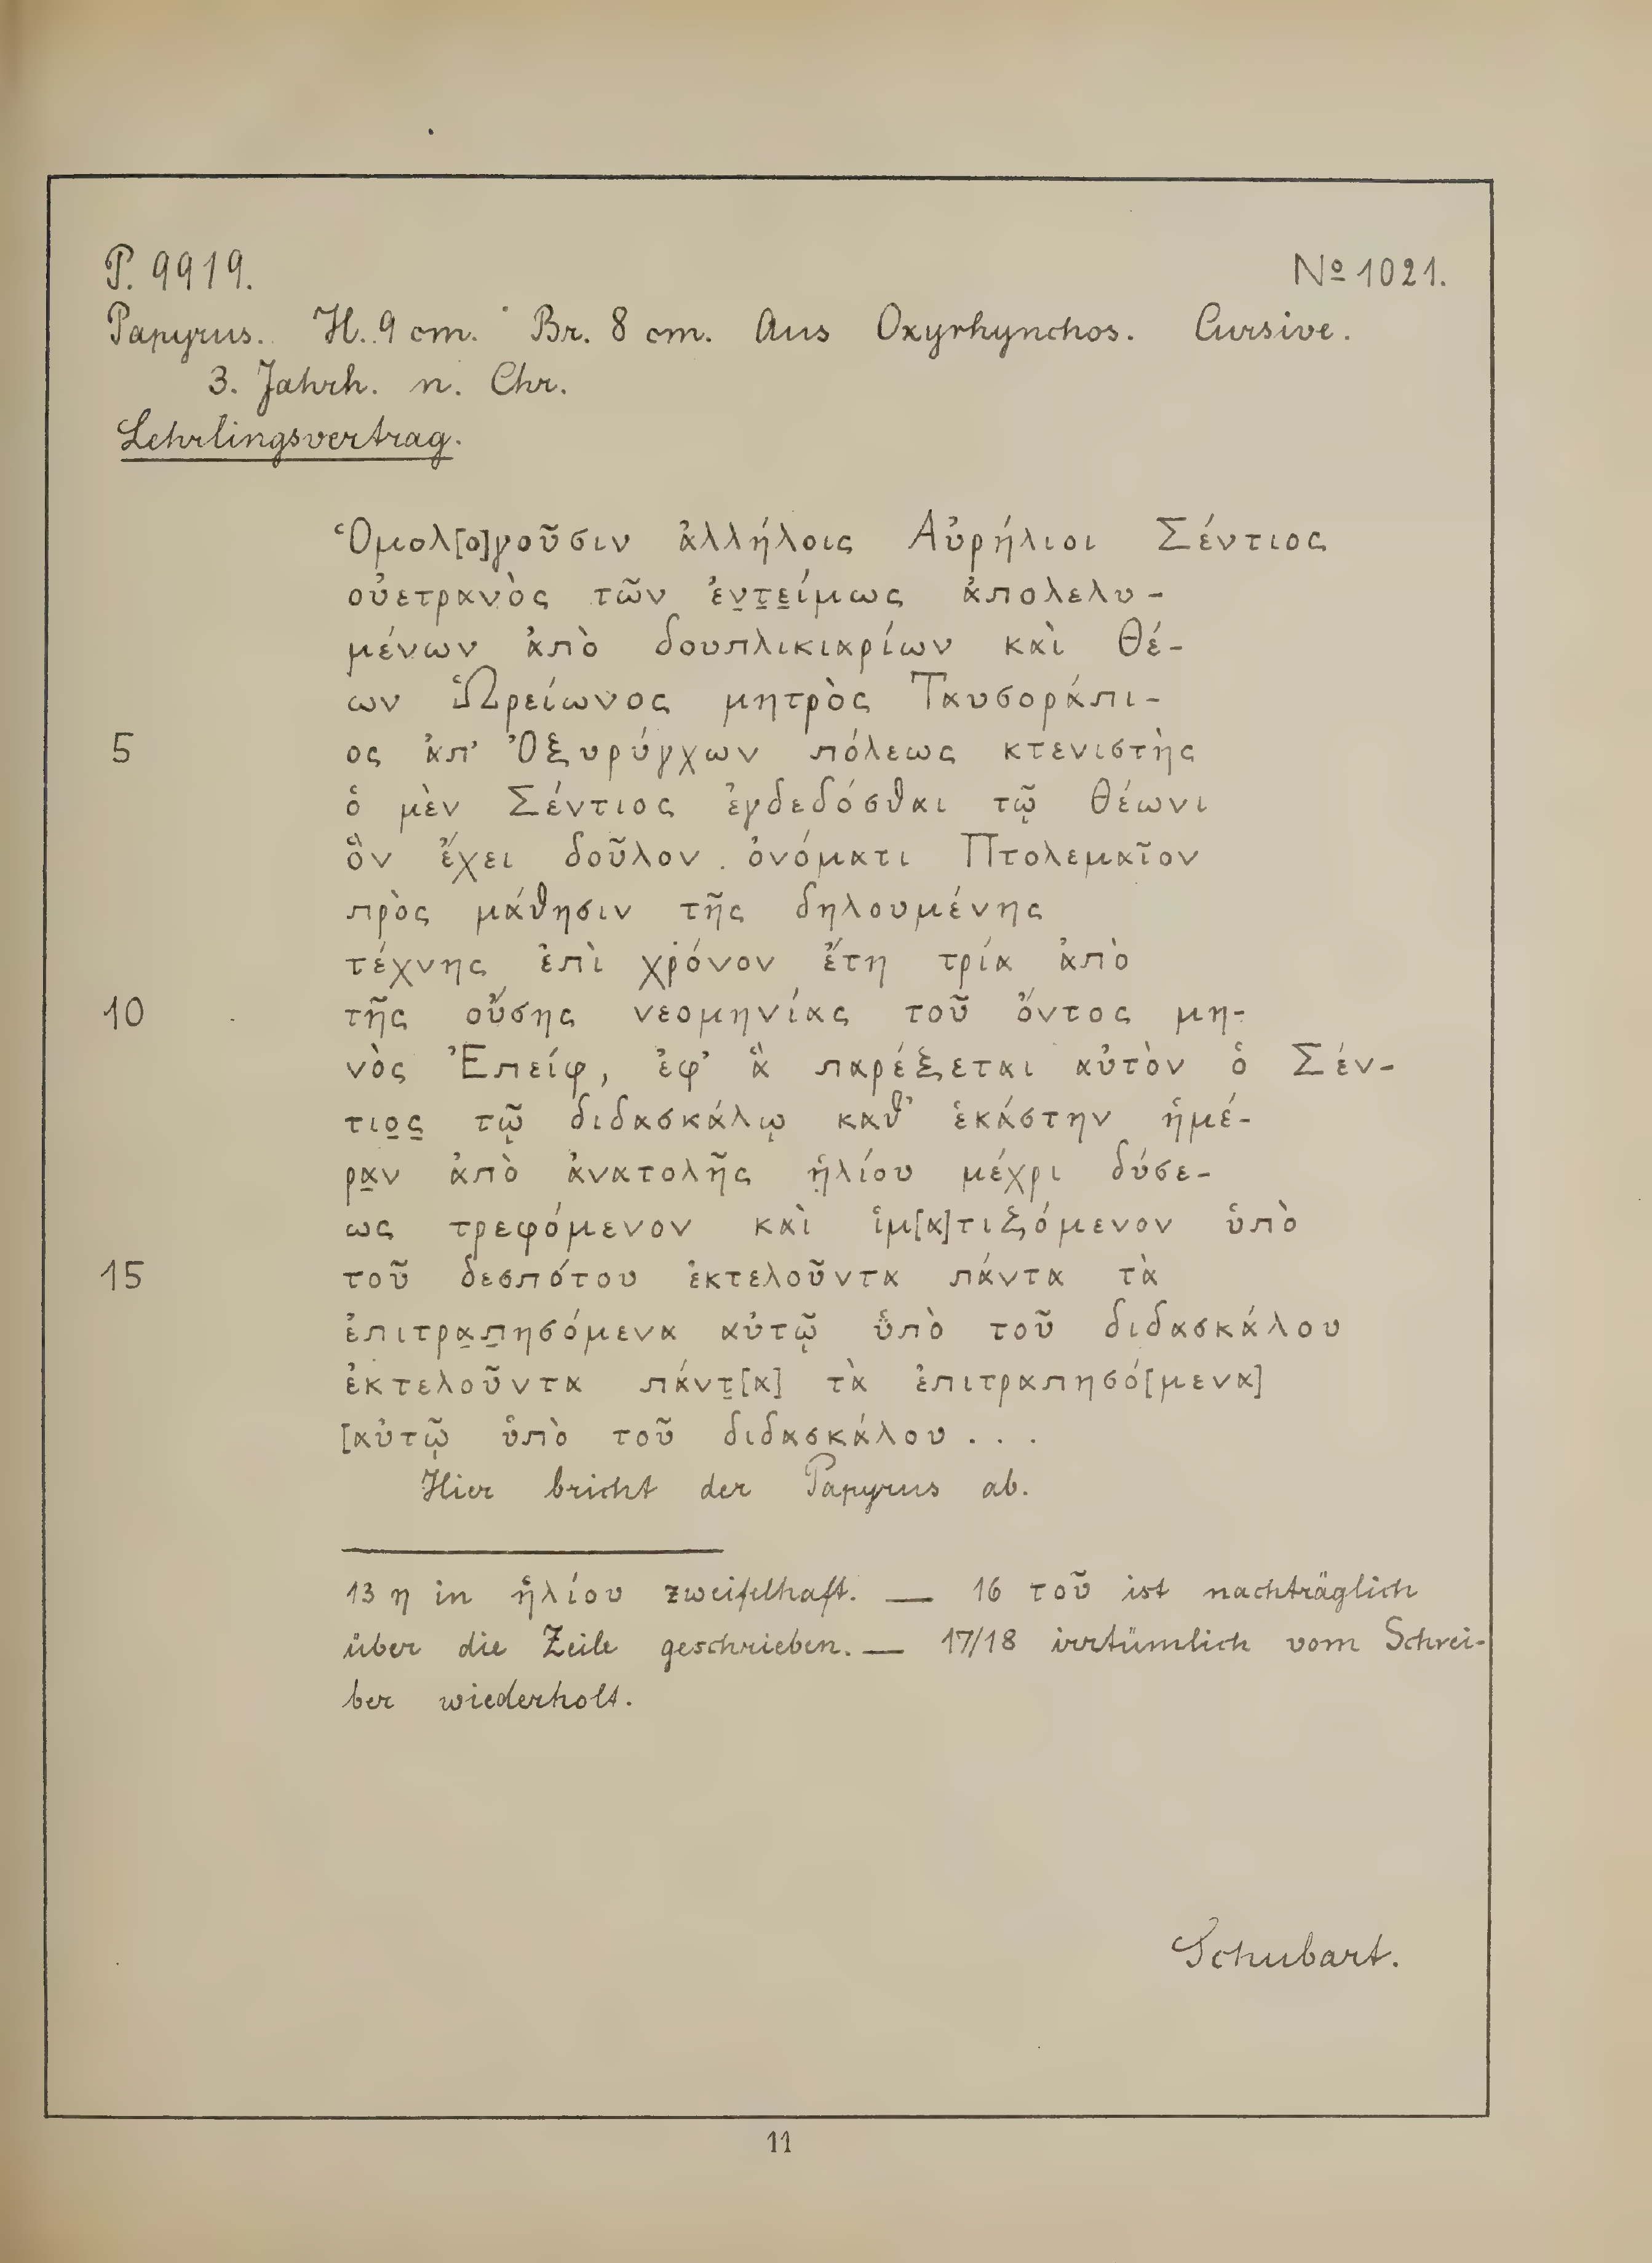 P. 9919. № 1021.
Papyrus. H. 9 cm. Br. 8 cm. Aus Oxyrhynchos. Cursive.
3. Jahrh. n. Chr.
Lehrlingsvertrag.
Ὁμολ[ο]γοῦσιν ἀλλήλοις Αὐρήλιοι Σέντιος
οὐετρανὸς τῶν ἐν̣τ̣ε̣ίμως ἀπολελυ-
μένων ἀπὸ δουπλικιαρίων καὶ Θέ-
ων Ὡρείωνος μητρὸς Ταυσοράπι-
5 ος ἀπ' Ὀξυρύγχων πόλεως κτενιστὴς
ὁ μὲν Σέντιος ἐγδεδόσθαι τῷ Θέωνι
ὃν ἔχει δοῦλον ὀνόματι Πτολεμαῖον
πρὸς μάθησιν τῆς δηλουμένης
τέχνης ἐπὶ χρόνον ἔτη τρία ἀπὸ
10 τῆς οὔσης νεομηνίας τοῦ ὄντος μη-
νὸς Ἐπείφ, ἐφ' ἃ παρέξεται αὐτὸν ὁ Σέν-
τιο̣ς̣ τῷ διδασκάλῳ καθ' ἑκάστην ἡμέ-
ρα̣ν ἀπὸ ἀνατολῆς ἡ̣λίου μέχρι δύσε-
ως τρεφόμενον καὶ ἱμ[α]τιζόμενον ὑπὸ
15 τοῦ δεσπότου ἐκτελοῦντα πάντα τὰ
ἐπιτρα̣π̣ησόμενα αὐτῷ ὑπὸ τοῦ διδασκάλου
ἐκτελοῦντα πάντ̣[α] τὰ ἐπιτραπησό[μενα]
[αὐτῷ ὑπὸ τοῦ διδασκάλου . . .
Hier bricht der Papyrus ab.
13 η in ἡλίου zweifelhaft. — 16 τοῦ ist nachträglich
über die Zeile geschrieben. — 17/18 irrtümlich vom Schrei-
ber wiederholt.
Schubart.
11